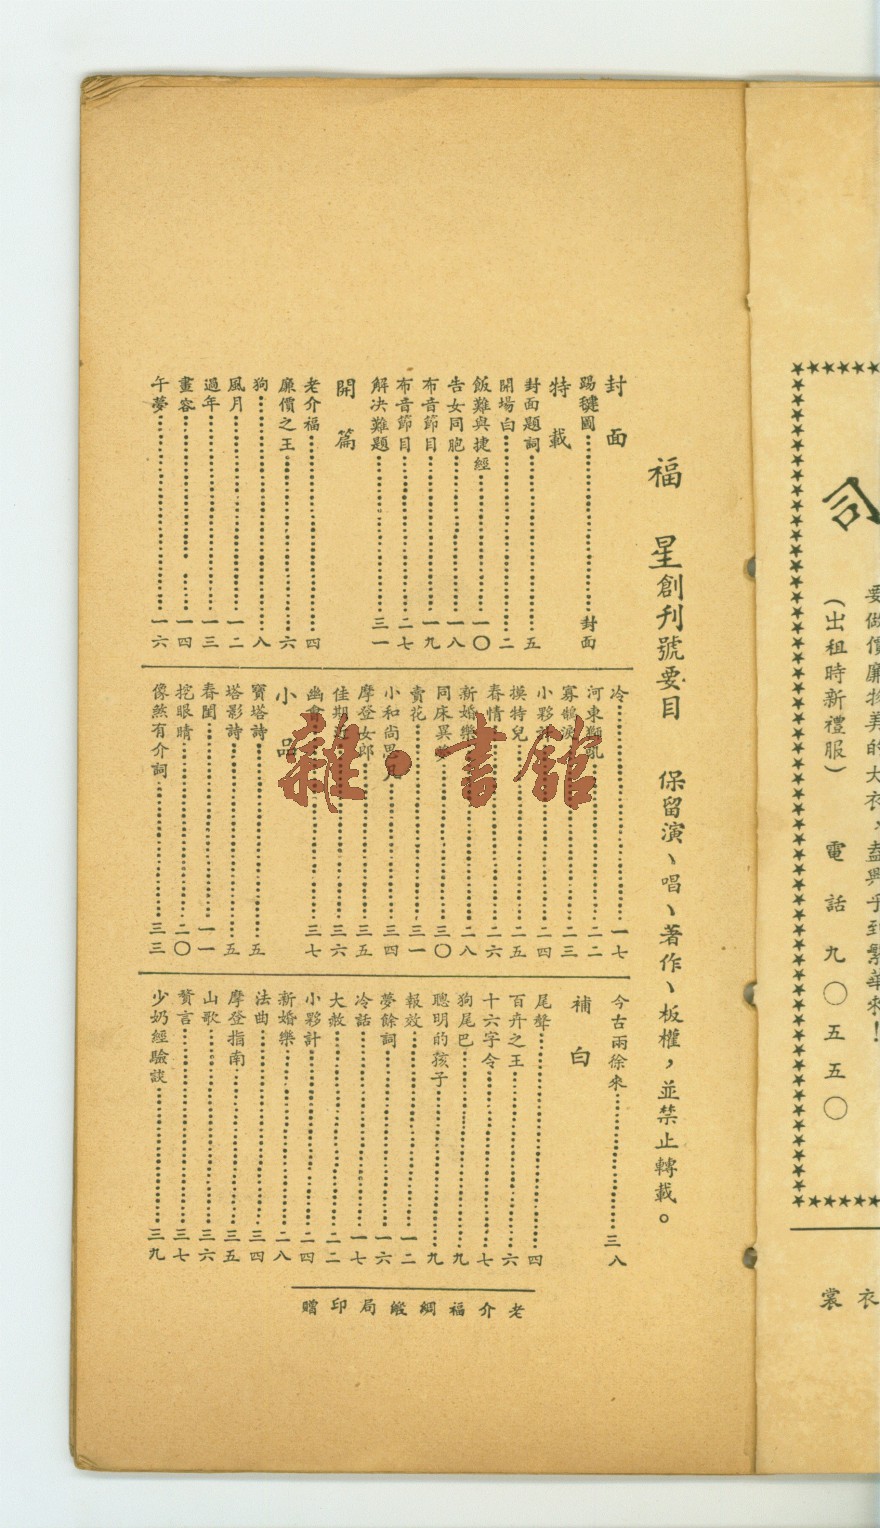 福星創刊號要目 保留演、唱、著作、板權，並禁止轉載。
封面
踢毽圖 封面
特載
封面題詞 五
開場白 二
飯難與捷經 一〇
告女同胞 一八
布音節目 一九
布音節目 二七
解決難題 三一
開篇
老介福 四
廉價之王 六
狗 八
風月 一二
過年 一三
畫容 一四
午夢 一六
冷 一七
河東獅吼 二二
寡鵠淚 二三
小夥計 二四
模特兒 二五
春情 二六
新婚樂 二八
同床異夢 三〇
賣花 三一
小和尚思凡 三四
摩登女郎 三五
佳期近 三六
幽會 三七
小品
寶塔詩 五
塔影詩 五
春閨 一一
挖眼睛 二〇
像煞有介詞 三三
今古兩徐來 三八
補白
尾聲 四
百卉之王 六
十六字令 七
狗尾巴 九
聰明的孩子 九
報效 一二
夢餘詞 一六
冷話 一七
大赦 二二
小夥計 二四
新婚樂 二八
法曲 三四
摩登指南 三五
山歌 三六
贅言 三七
少奶經驗談 三九
老介福綢緞局印贈
雜·書館
司
要做價廉物美的大衣、盍興乎到繁華來！
（出租時新禮服） 電話九〇五五〇
衣裳